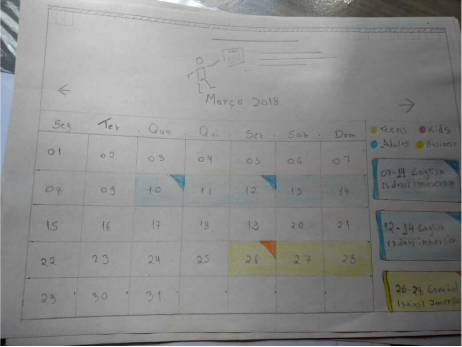 Março 2018
Seg Ter Qua Qui Sex Sab Dom
01 02 03 04 05 06 07
08 09 10 11 12 13 14
15 16 17 18 19 20 21
22 23 24 25 26 27 28
29 30 31
Teens Kids
Adults Business
12-14 English